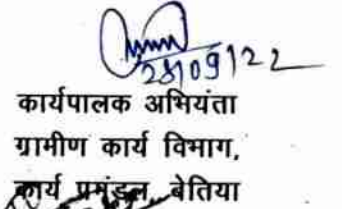 28/09/22
कार्यपालक अभियंता
ग्रामीण कार्य विभाग,
कार्य प्रमंडल, बेतिया